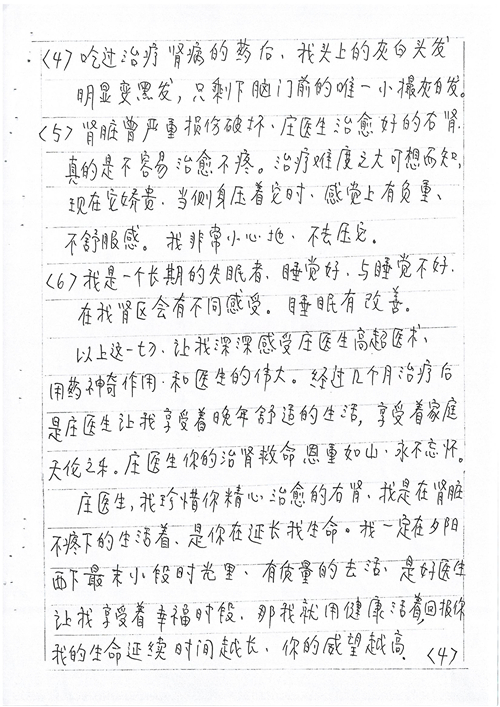 (4) 吃过治疗肾病的药后、我头上的灰白头发
明显变黑发，只剩下脑门前的唯一小撮灰白发。
(5) 肾脏曾严重损伤破坏、庄医生治愈好的右肾.
真的是不容易治愈不疼。治疗难度之大可想而知，
现在它娇贵、当侧身压着它时、感觉上有负重、
不舒服感。我非常小心地、不去压它。
(6) 我是一个长期的失眠者、睡觉好、与睡觉不好.
在我肾区会有不同感受。睡眠有改善。
以上这一切、让我深深感受庄医生高超医术、
用药神奇作用、和医生的伟大。经过几个月治疗后
是庄医生让我享受着晚年舒适的生活，享受着家庭
天伦之乐。庄医生你的治肾救命恩重如山、永不忘怀。
庄医生，我珍惜你精心治愈的右肾、我是在肾脏
不疼下的生活着、是你在延长我生命。我一定在夕阳
西下最末小段时光里、有质量的去活、是好医生
让我享受着幸福时段、那我就用健康活着，回报你
我的生命延续时间越长、你的威望越高. (4)